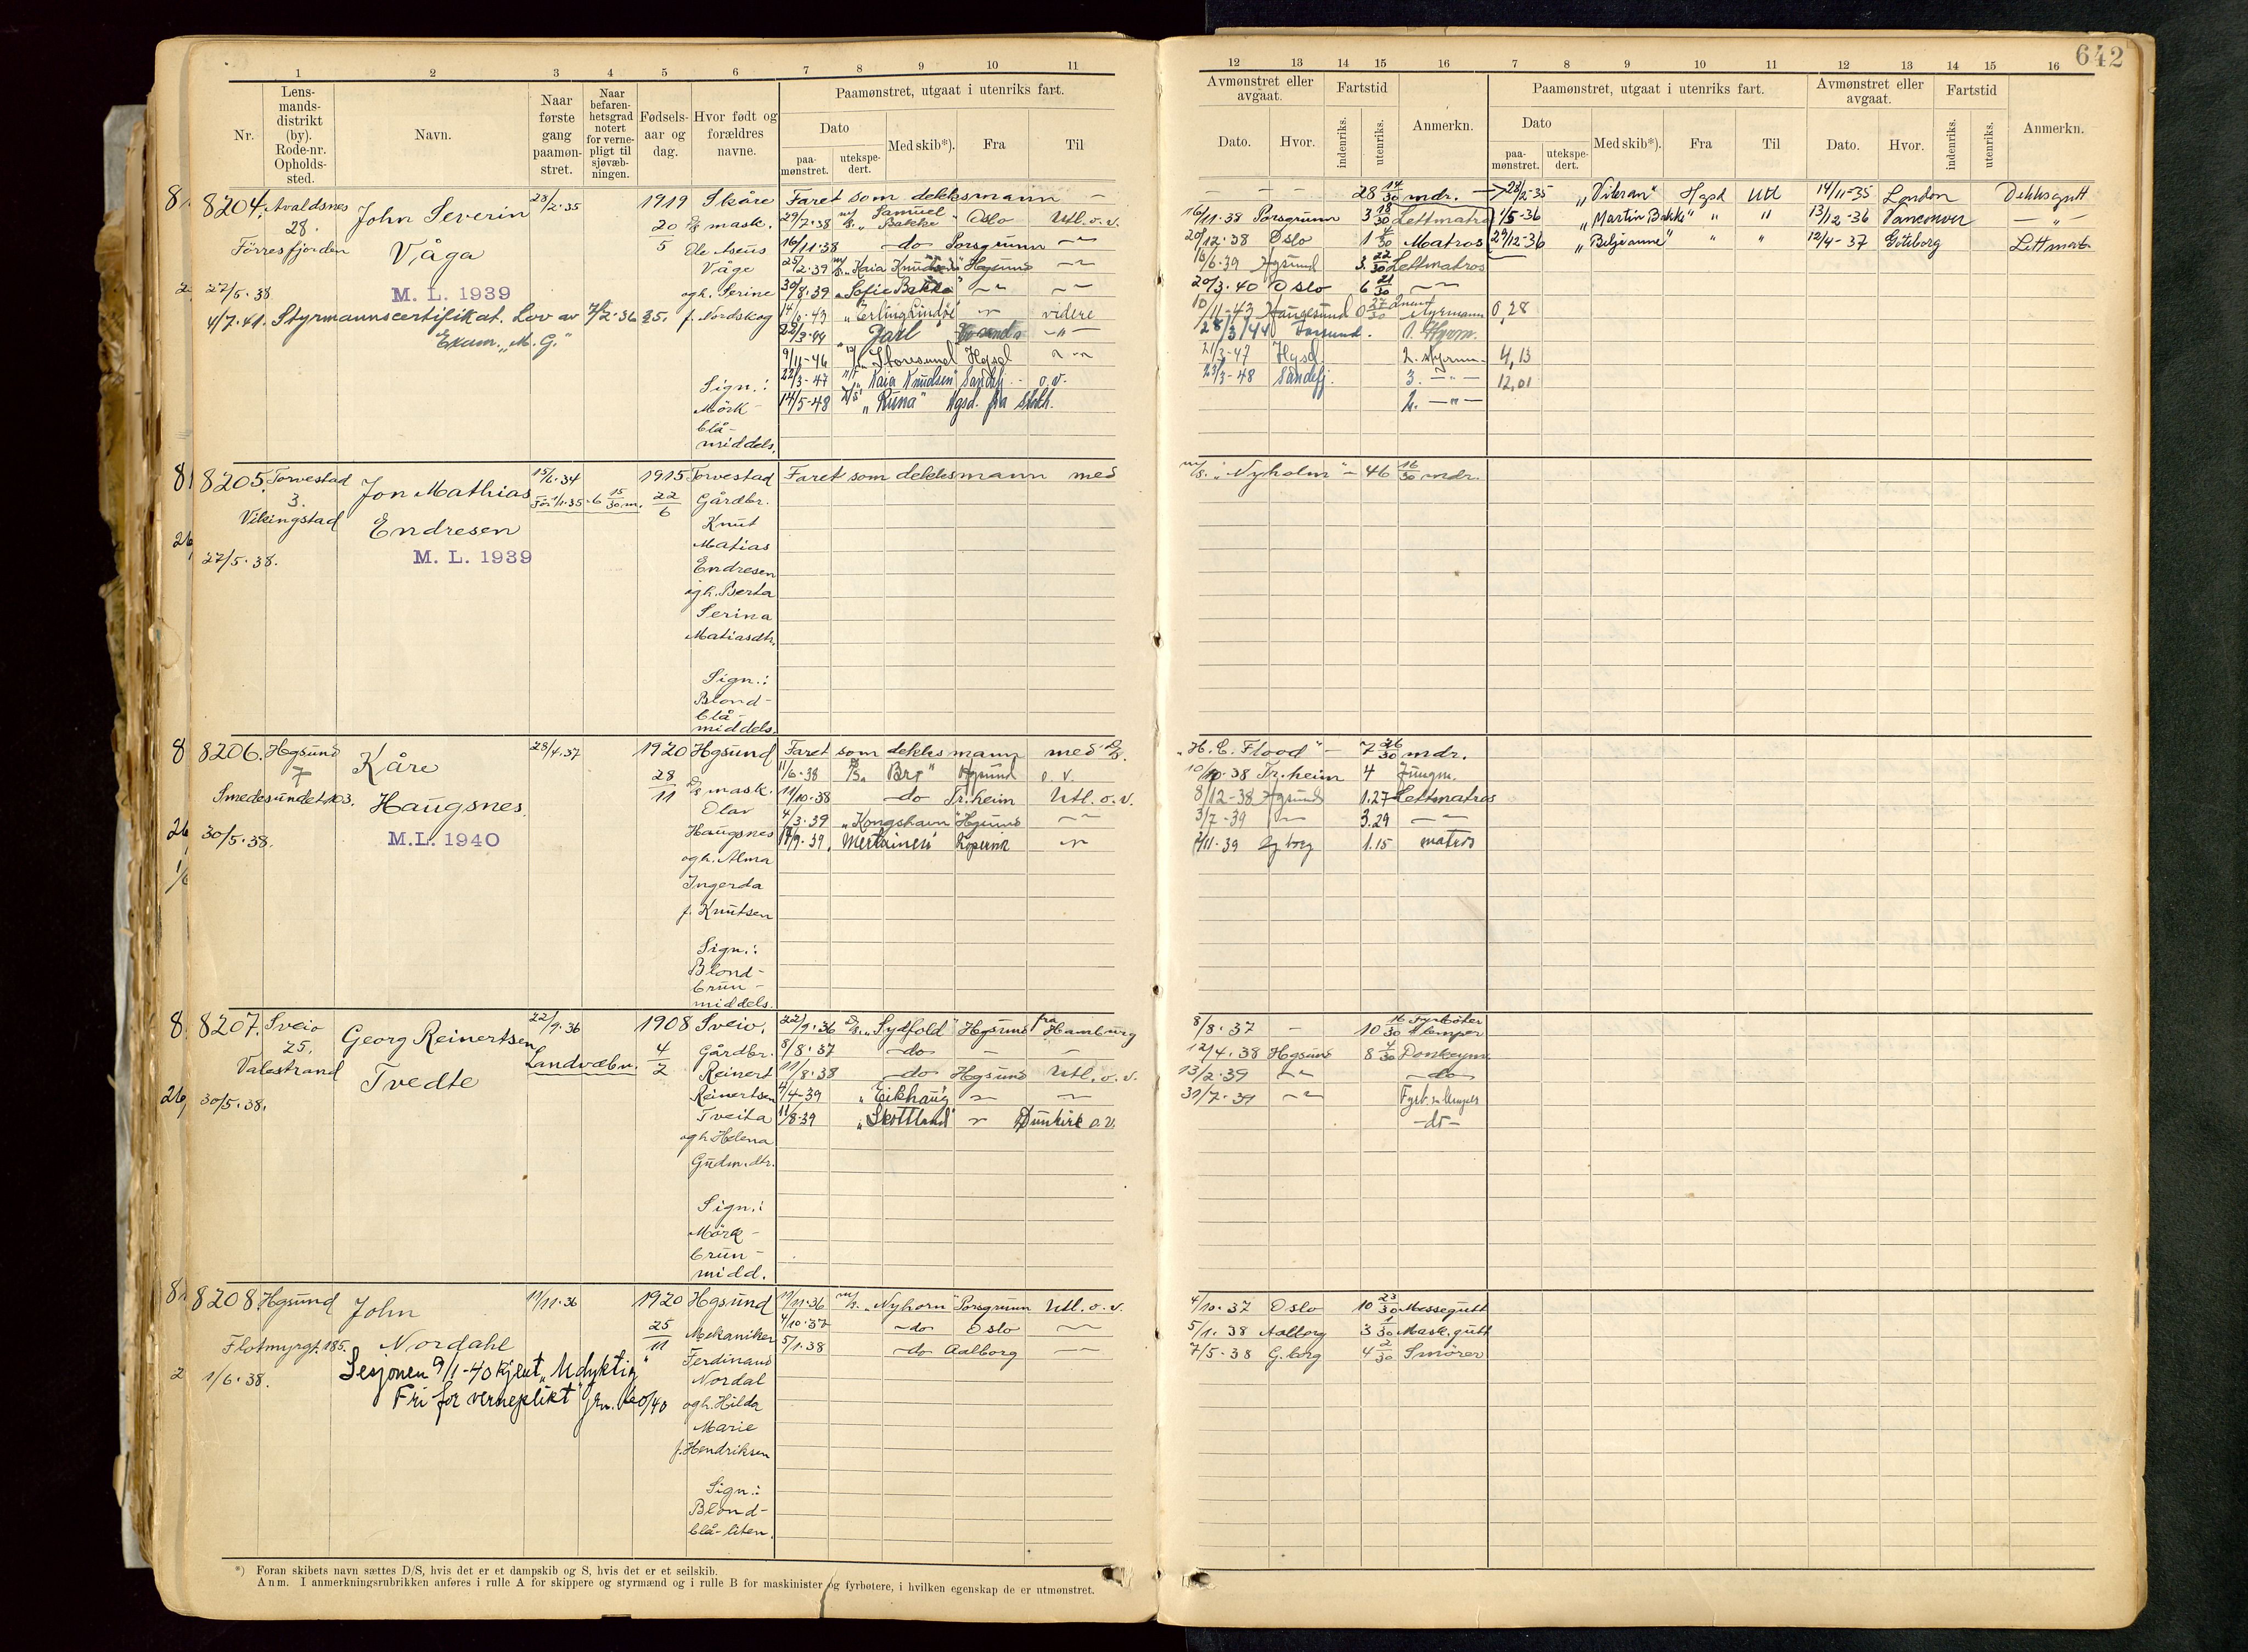 642
1 2 3 4 5 6 7 8 9 10 11
Nr.
Lens-
mands-
distrikt
(by).
Rode-nr.
Opholds-
sted.
Navn.
Naar
første
gang
paamøn-
stret.
Naar
befaren-
hetsgrad
notert
for verne-
pligt til
sjøvæb-
ningen.
Fødsels-
aar og
dag.
Hvor født og
forældres
navne.
Paamønstret, utgaat i utenriks fart.
Dato
paa-
mønstret.
utekspe-
dert.
Med skib*).
Fra
Til
12 13 14 15 16 7 8 9 10 11 12 13 14 15 16
Avmønstret eller
avgaat.
Fartstid
Dato.
Hvor.
indenriks.
utenriks.
Anmerkn.
Paamønstret, utgaat i utenriks fart.
Dato
paa-
mønstret.
utekspe-
dert.
Med skib*).
Fra
Til
Avmønstret eller
avgaat.
Fartstid
Dato.
Hvor.
indenriks.
utenriks.
Anmerkn.
8204. Avaldsnes
28.
Førresfjorden
27/5.38.
John Severin
Våga
M. L. 1939
4/7.41. Styrmannscertifikat. Lov av 7/2.36 §5.
Exam. "M. G."
28/2.35
1919
20/5
Skåre
mask.
Ole Aseus
Våge
og h. Serine
f. Nordskog
Sign.:
Mörk-
blå-
middels.
Faret som dekksmann —
29/7.38 m/s. „Samuel Bakke" Oslo Utl. o. v.
16/11.38 —do— Porsgrunn —"—
25/2.39 „Kaia Knudsen" Hgsund —"—
30/8.39 „Sofie Bakke" —"— —"—
„Erling Lindøe" —"— videre
22/3-44 „Jarl" —"—
9/11-46 „Storesund" Hgsd —"—
22/3-47 „Kaia Knudsen" Sandefj. o.v.
14/5-48 „Runa" Hgsd. fra Stokh.
— — — 28 14/30 mdr. —
16/11.38 Porsgrunn 3 18/30 Lettmatros
20/12.38 Oslo 1 4/30 Matros
Hgsund 3. 22/30 Lettmatros
20/3.40 Oslo 6 21/30 —"—
10/11-43 Haugesund 0 27/30 Styrmann 0,28
28/3/44 1. Styrm.
21/3-47 Hgsd. 2. styrm. 4,13
23/3-48 Sandefj. 3. —"— 12,01
2. —"—
28/2-35 „Vikran" Hgsd Utl 14/11-35 London Dekksgutt
1/5-36 „Martin Bakke" " " 13/12-36 Vancouver —"—
29/12-36 „Belgeanne" " " 12/4-37 Göteborg Lettmatr.
8205. Torvestad
3.
Vikingstad
27/5.38.
Jon Mathias
Endresen
M. L. 1939
15/6.34
Før 1/1.35 - 6 15/30 m.
1915
22/6
Torvestad
Gårdbr.
Knut
Matias
Endresen
og h. Berta
Serina
Matiasdtr.
Sign.:
Blond-
blå-
middels.
Faret som dekksmann med
m/s. „Nyholm" — 46 16/30 mdr.
8206. Hgsund
7
Smedesundet 103.
30/5.38.
Kåre
Haugsnes.
M.L. 1940
28/4.37
1920
28/11
Hgsund
mask.
Olav
Haugsnes
og h. Alma
Ingerda
f. Knutsen
Sign.:
Blond-
brun-
middels.
Faret som dekksmann med D/S.
11/6.38 D/S. „Bro" Hgsund o. v.
11/10.38 —do— Tr.heim Utl. o. v.
4/3.39 „Kongshavn" Hgsund —"—
„Mertainen" Kopervik —"—
„H. C. Flood" — 7 26/30 mdr.
10/10.38 Tr.heim 4 Jungm.
8/12-38 Hgsund 1.27 Lettmatros
3/7-39 —"— 3.29 —"—
11-39 G borg 1.15 matros
8207. Sveio
25.
Valestrand
30/5.38.
Georg Reinertsen
Tvedte
22/9.36
Landvæbn.
1908
4/2
Sveio.
Gårdbr.
Reinert
Reinertsen
Tveita
og h. Helena
Gudm.dtr.
Sign.:
Mörk-
brun-
midd.
22/9.36 D/S. „Sydfold" Hgsund fra Hamburg
8/8.37 —do— — —
11/8.38 —do— Hgsund Utl. o. v.
4/4-39 „Eikhaug" —"— —"—
11/8-39 „Skottland" —"— Dunkirk o.v.
8/8.37 — 10 16/30 Fyrbøter & lemper
12/4.38 Hgsund 8 4/30 Donkeym.
13/2-39 —"— —do—
31/7-39 —"— Fyrb. & lemper
—do—
8208. Hgsund
Flotmyrgt. 185.
1/6.38.
John
Nordahl
Sesjonen 9/1-40 kjent „Udyktig
Fri for verneplikt" jrn. 160/40
11/11.36
1920
25/11
Hgsund
Mekaniker
Ferdinand
Nordal
og h. Hilda
Marie
f. Hendriksen
Sign.:
Blond-
blå-liten.
11/11.36 m/s. „Nyhorn" Porsgrunn Utl. o. v.
4/10.37 —do— Oslo —"—
5/1.38 —do— Aalborg —"—
4/10.37 Oslo 10 23/30 Messegutt
5/1.38 Aalborg 3 1/30 Mask.gutt
7/5-38 G.borg 4 2/30 Smörer
*) Foran skibets navn sættes D/S, hvis det er et dampskib og S, hvis det er et seilskib.
Anm. I anmerkningsrubrikken anføres i rulle A for skippere og styrmænd og i rulle B for maskinister og fyrbøtere, i hvilken egenskap de er utmønstret.